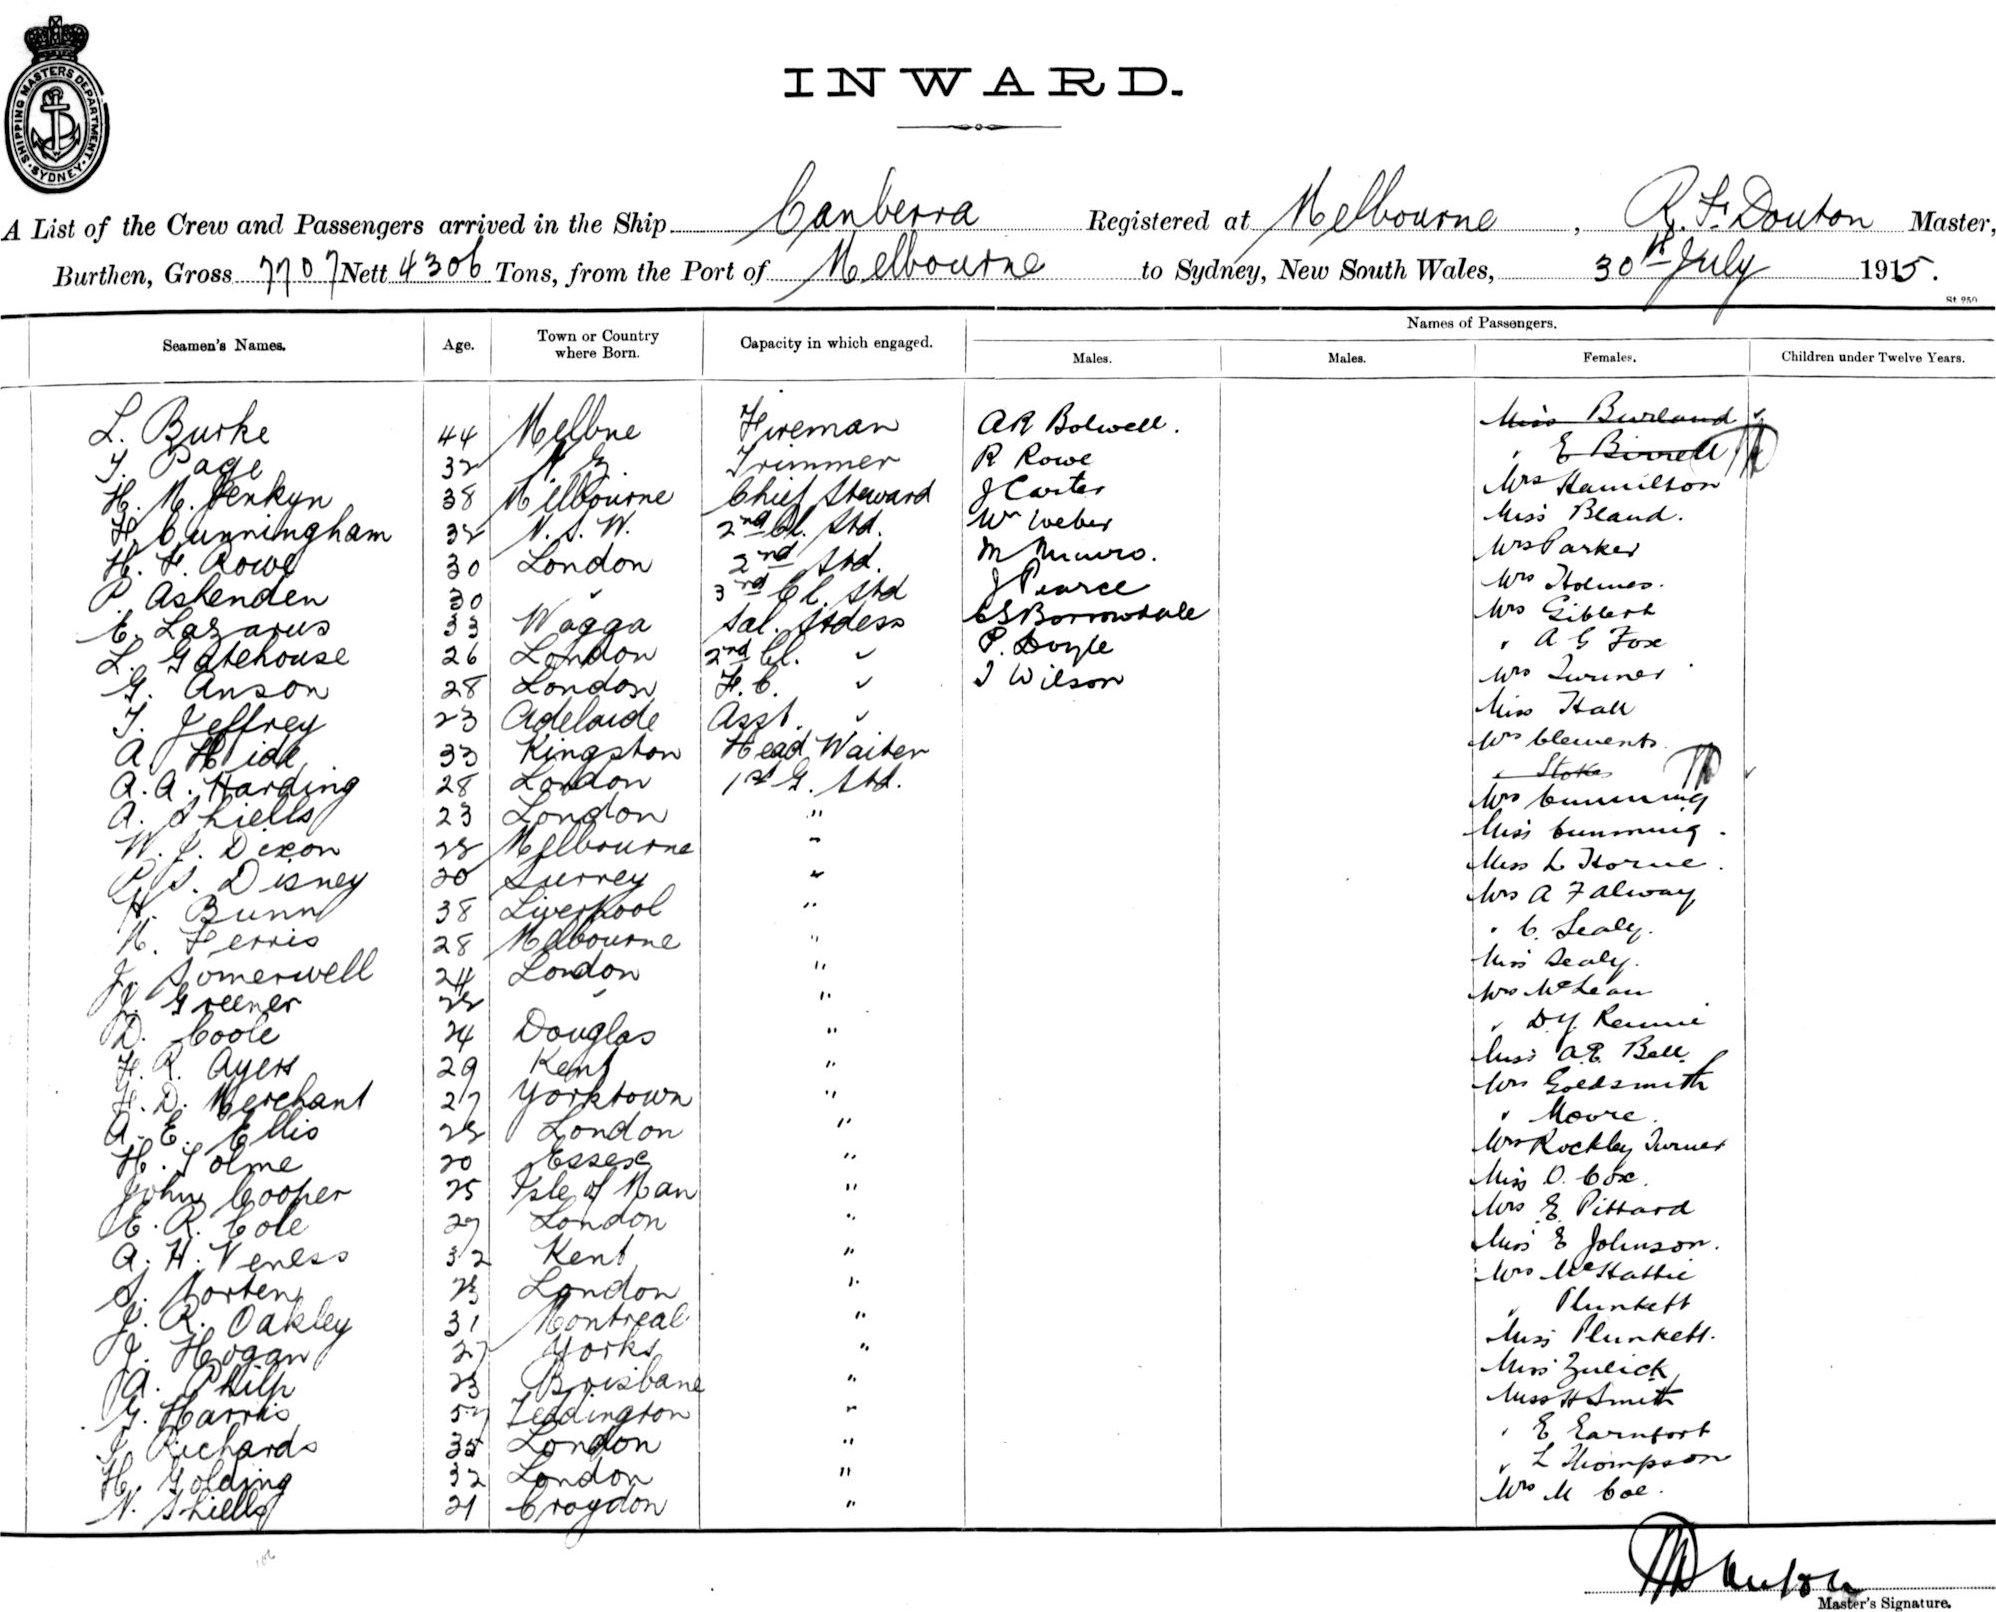 SHIPPING MASTERS DEPARTMENT. SYDNEY.
INWARD.
A List of the Crew and Passengers arrived in the Ship Canberra Registered at Melbourne, R. F. Douton Master,
Burthen, Gross 7707 Nett 4306 Tons, from the Port of Melbourne to Sydney, New South Wales, 30th July 1915.
St 250
Names of Passengers.
Seamen's Names. Age. Town or Country where Born. Capacity in which engaged. Males. Males. Females. Children under Twelve Years.
L. Burke 44 Melbne Fireman AR Bolwell. Miss Burland
T. Page 32 N. Z. Trimmer R Rowe " E Birrell
H. M. Jenkyn 38 Melbourne Chief Steward J Carter Mrs Hamilton
H. Cunningham 32 N. S. W. 2nd Cl. Std. Wm Weber Miss Bland.
H. F. Rowe 30 London 2nd Std. M Munro. Mrs Parker
P. Ashenden 30 " 3rd Cl. Std J Pearce Mrs Holmes.
E. Lazarus 33 Wagga Sal. Stdess CS Borrowdale Mrs Gibbert
L. Gatehouse 26 London 2nd Cl. " P. Doyle " A G Fox
G. Anson 28 London F. C. " J Wilson Mrs Turner
T. Jeffrey 23 Adelaide Asst. " Miss Hall
A. Hide 33 Kingston Head Waiter Mrs Clements
A. A. Harding 28 London 1st G. Std. " Stokes
A. Shiells 23 London " Mrs Cumming
W. J. Dixon 28 Melbourne " Miss Cumming.
P. S. Disney 20 Surrey " Miss L Horne.
H. Bunn 38 Liverpool " Mrs A Falway
N. Ferris 28 Melbourne " " C. Sealy.
J. Somerwell 24 London " Miss Sealy.
J. Greener 28 " " Mrs McLean
D. Coole 24 Douglas " " D.Y. Rennie
F. R. Ayers 29 Kent " Miss A.E. Bell
H. D. Merchant 27 Yorktown " Mrs Goldsmith
A. E. Ellis 28 London " " Moore.
H. Tolme 20 Essex " Mrs Rockley Turner
John Cooper 25 Isle of Man " Miss O. Cox.
E. R. Cole 27 London " Mrs E Pittard
A. H. Veness 32 Kent " Miss E Johnson.
S. Norten 23 London " Mrs McHattie
J. R. Oakley 31 Montreal " " Plunkett
J. Hogan 27 Yorks " Miss Plunkett.
A. Philp 23 Brisbane " Miss Zulick
G. Harris 57 Teddington " Miss H Smith
J. Richards 35 London " " E Earnfort
H. Golding 32 London " " L Thompson
N. Shiells 21 Croydon " Mrs M Coe.
Douton
Master's Signature.